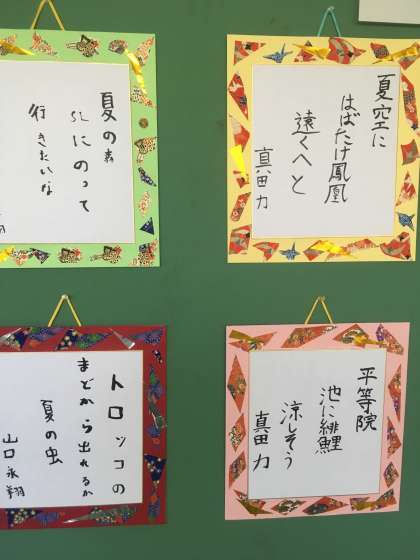 夏の森
SLにのって
行きたいな
夏空に
はばたけ鳳凰
遠くへと
真田力
トロッコの
まどから出れるか
夏の虫
山口永翔
平等院
池に緋鯉
涼しそう
真田力